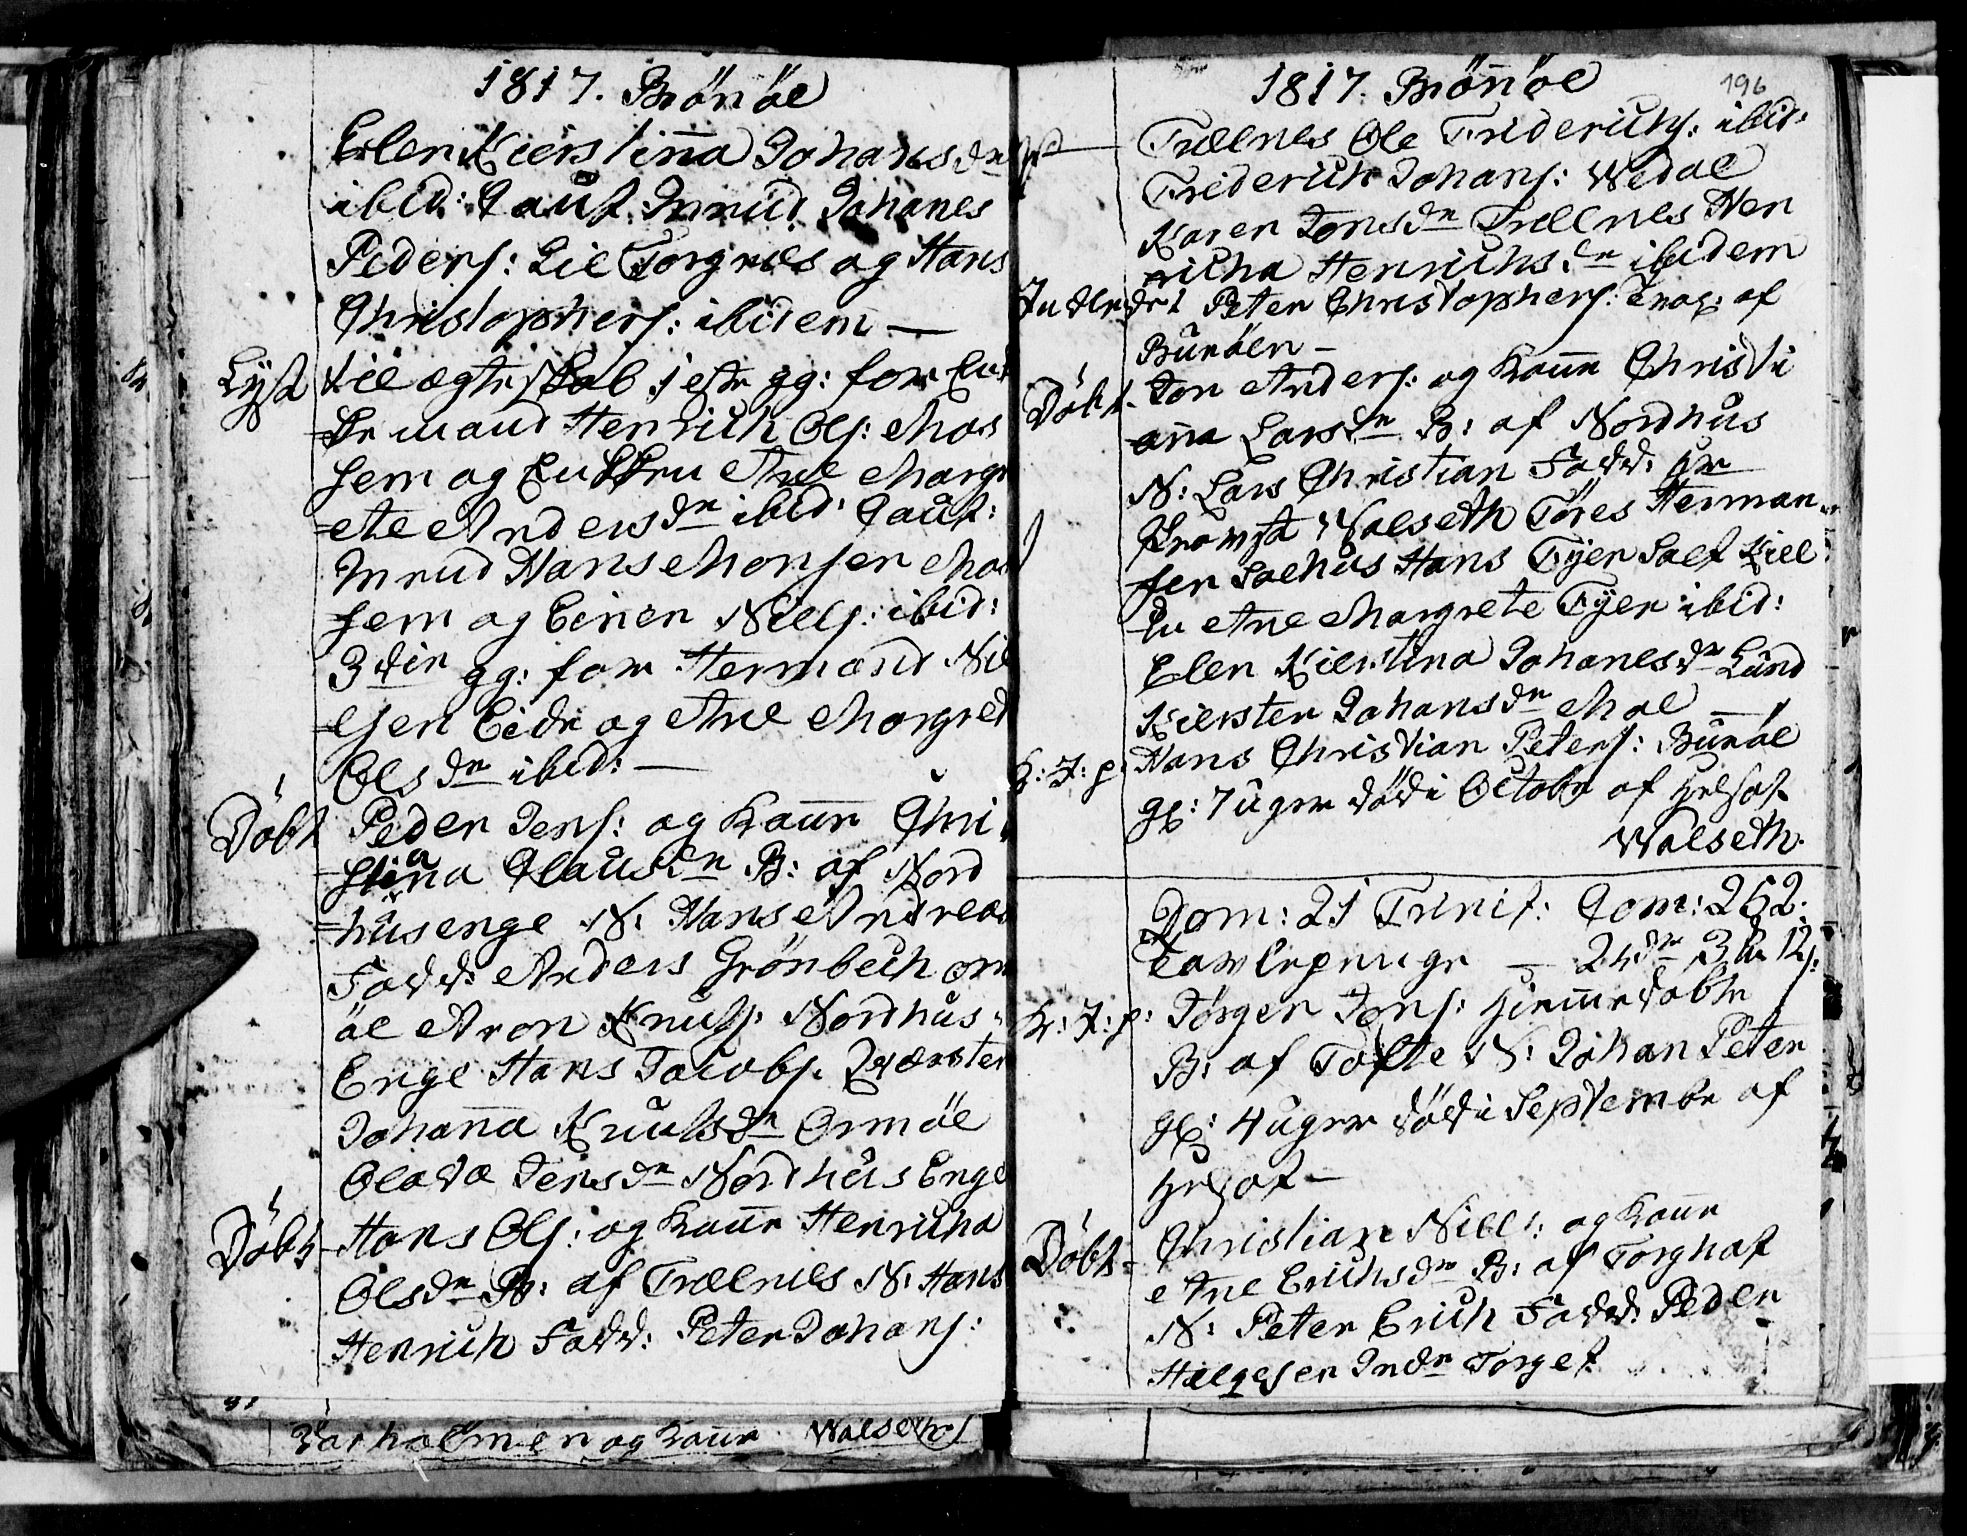 1817. Brönöe
Elen Kierstinna Johansdr
ibid: Caut. Inrud Johanes
Peders: Lie Torgnes og Hans
Christophers: ibidem —
Lyst til ægteskab 1ste gg: for
mand Henrich Ols: Mos
sem og Ane Margr
ete Andersdr ibid: Caut:
Inrud Hans Monsen Mos
sem og Einer Niels: ibid:
3die gg: for Hermand Nil
sen Eide og Ane Margret
Olsdr ibid: —
Döbt Peder Jens: og kone Chri
stina Clausdr B: af Nord
husenge N: Hans Andreas
Fadd: Anders Grönbech Orm
öe Aron Knuts: Nordhus
Enge Hans Jacobs:
Johanna Knutsdr Ormöe
Olava Jensdr Nordhus Enge
Döbt Hans Ols: og kone Henricha
Olsdr B: af Trælnes N: Hans
Henrich Fadd: Peter Johans:
holmen og kone Walseth
196
1817. Brönöe
Trælnes Ole Friderichs: ibid:
Friderich Johans: Wedal
Karen Jonsdr Trælnes Hen
richa Henrichsdr ibidem
Introd: Peter Christophers: kone af
Buröen —
Döbt Jon Anders: og kone Christi
anna Larsdr B: af Nordhus
N: Lars Christian Fadd: Hr
Provst Walseth Töres Herman
sen Salhus Hans Tyen Salf
Ane Margrete Tyen ibid:
Elen Kierstina Johanesdr Lund
Kiersten Johansdr Moe
Gr: J: p: Hans Christian Peters: Buröe
gl: 7 uger död i October af
Walseth.
Dom: 21 Trinit: Com: 262:
Tavlepenge — 2 3 12 s:
Gr: J: p: Jörgen Jens: hiemedöbte
B: af Tofte N: Johan Peter
gl: 4 uger död i September af
Döbt Christian Niels: og kone
Ane Erichsdr B: af Torghat
N: Peter Erich Fadd: Peder
Hælgesen Indr Torget